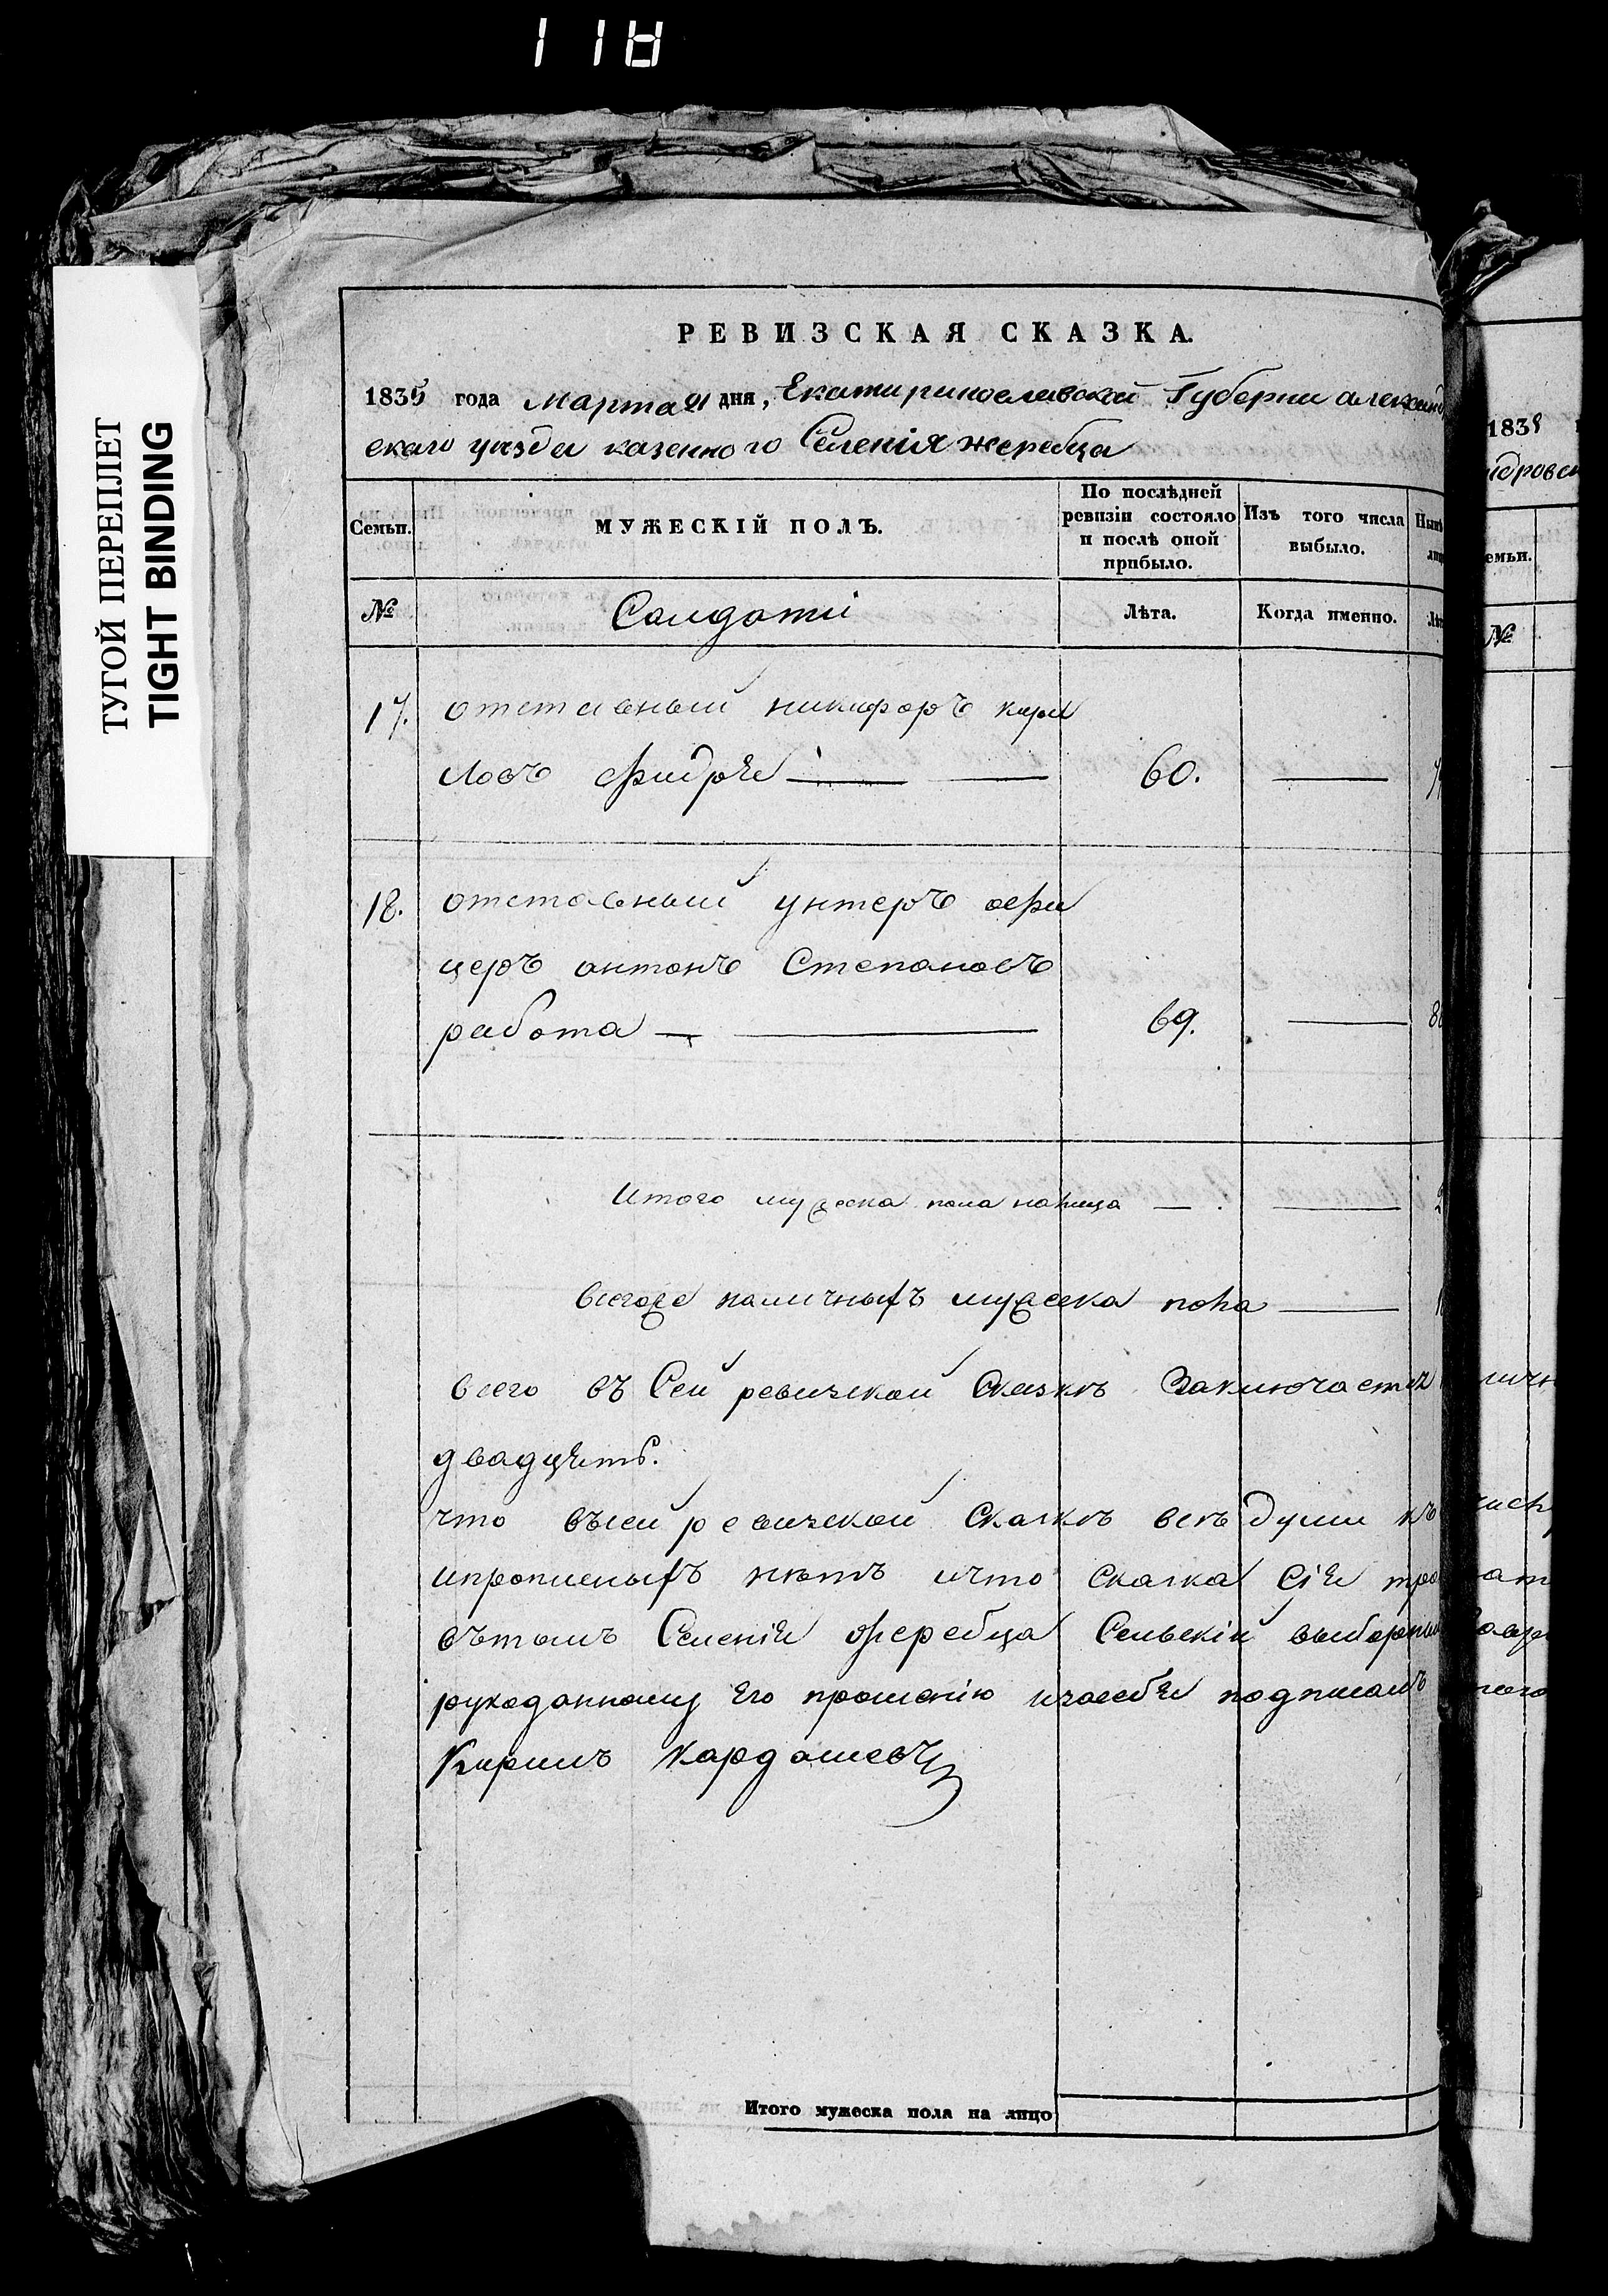 118
ТУГОЙ ПЕРЕПЛЕТ
TIGHT BINDING
РЕВИЗСКАЯ СКАЗКА.
1835 года марта дня, Екатиринославской Губернии александ
скаго уезда казенного Селенія жеребца
Семьи.
МУЖЕСКІЙ ПОЛЪ.
По послѣдней ревизіи состояло и послѣ оной прибыло.
Изъ того числа выбыло.
№
Салдати
Лѣта.
Когда именно.
17. отставный никифоръ кири
ловъ 60.
18. отставный унтеръ офи
церъ антонъ Степановъ
работа 69.
Итого мужеска пола налица
всегоже наличныхъ мужеска пола
всего въ Сей ревизской Сказкѣ Заключается
двадцеть.
что въсей ревизской Сказкѣ всѣ души
ипрописныхъ нѣтъ ичто Сказка Сіе
вътомъ Селеніи жеребца Сельскій выборный
рукоданному Его прошенію изасебе подписалъ
Кирилъ Кардашевъ
Итого мужеска пола на лицо
1838
ндровск
емьи.
№